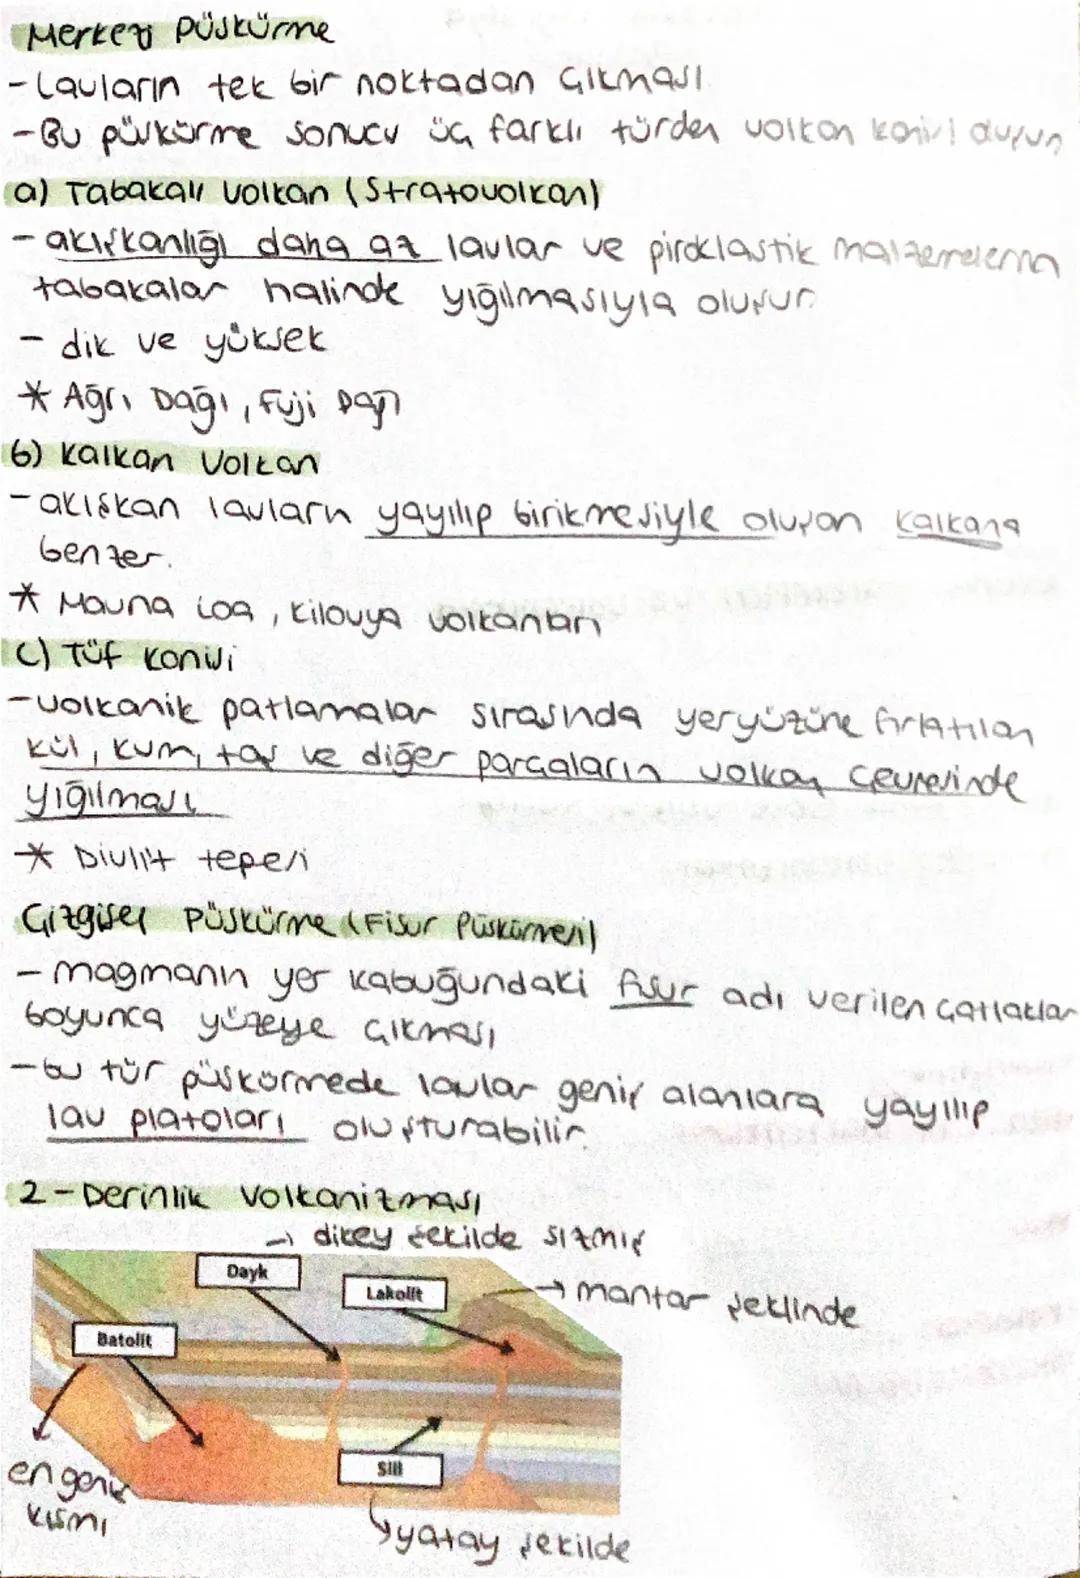 Merkezi Püskürme
- Lavların tek bir noktadan çıkması
- Bu püskürme sonucu üç farklı türden volkan konisi oluşur
a) Tabakalı Volkan (Stratovolkan)
- akışkanlığı daha az lavlar ve piroklastik malzemelerin
tabakalar halinde yığılmasıyla oluşur
- dik ve yüksek
* Ağrı Dağı, Fuji Dağı
b) Kalkan Volkan
- akışkan lavların yayılıp birikmesiyle oluşan kalkana
benzer.
* Mauna Loa, Kilauya volkanları
c) Tüf Konisi
- volkanik patlamalar sırasında yeryüzüne fırlatılan
kül, kum, taş ve diğer parçaların volkan çevresinde
yığılması
* Divlit tepesi
Çizgisel Püskürme (Fisur Püskürmesi)
- magmanın yer kabuğundaki fisur adı verilen çatlaklar
boyunca yüzeye çıkması
- bu tür püskürmede lavlar geniş alanlara yayılıp
lav platoları oluşturabilir.
2 - Derinlik Volkanizması
→ dikey şekilde sızmış
Dayk
Lakolit
→ mantar şeklinde
Batolit
Sill
en geniş
kısmı
↳ yatay şekilde